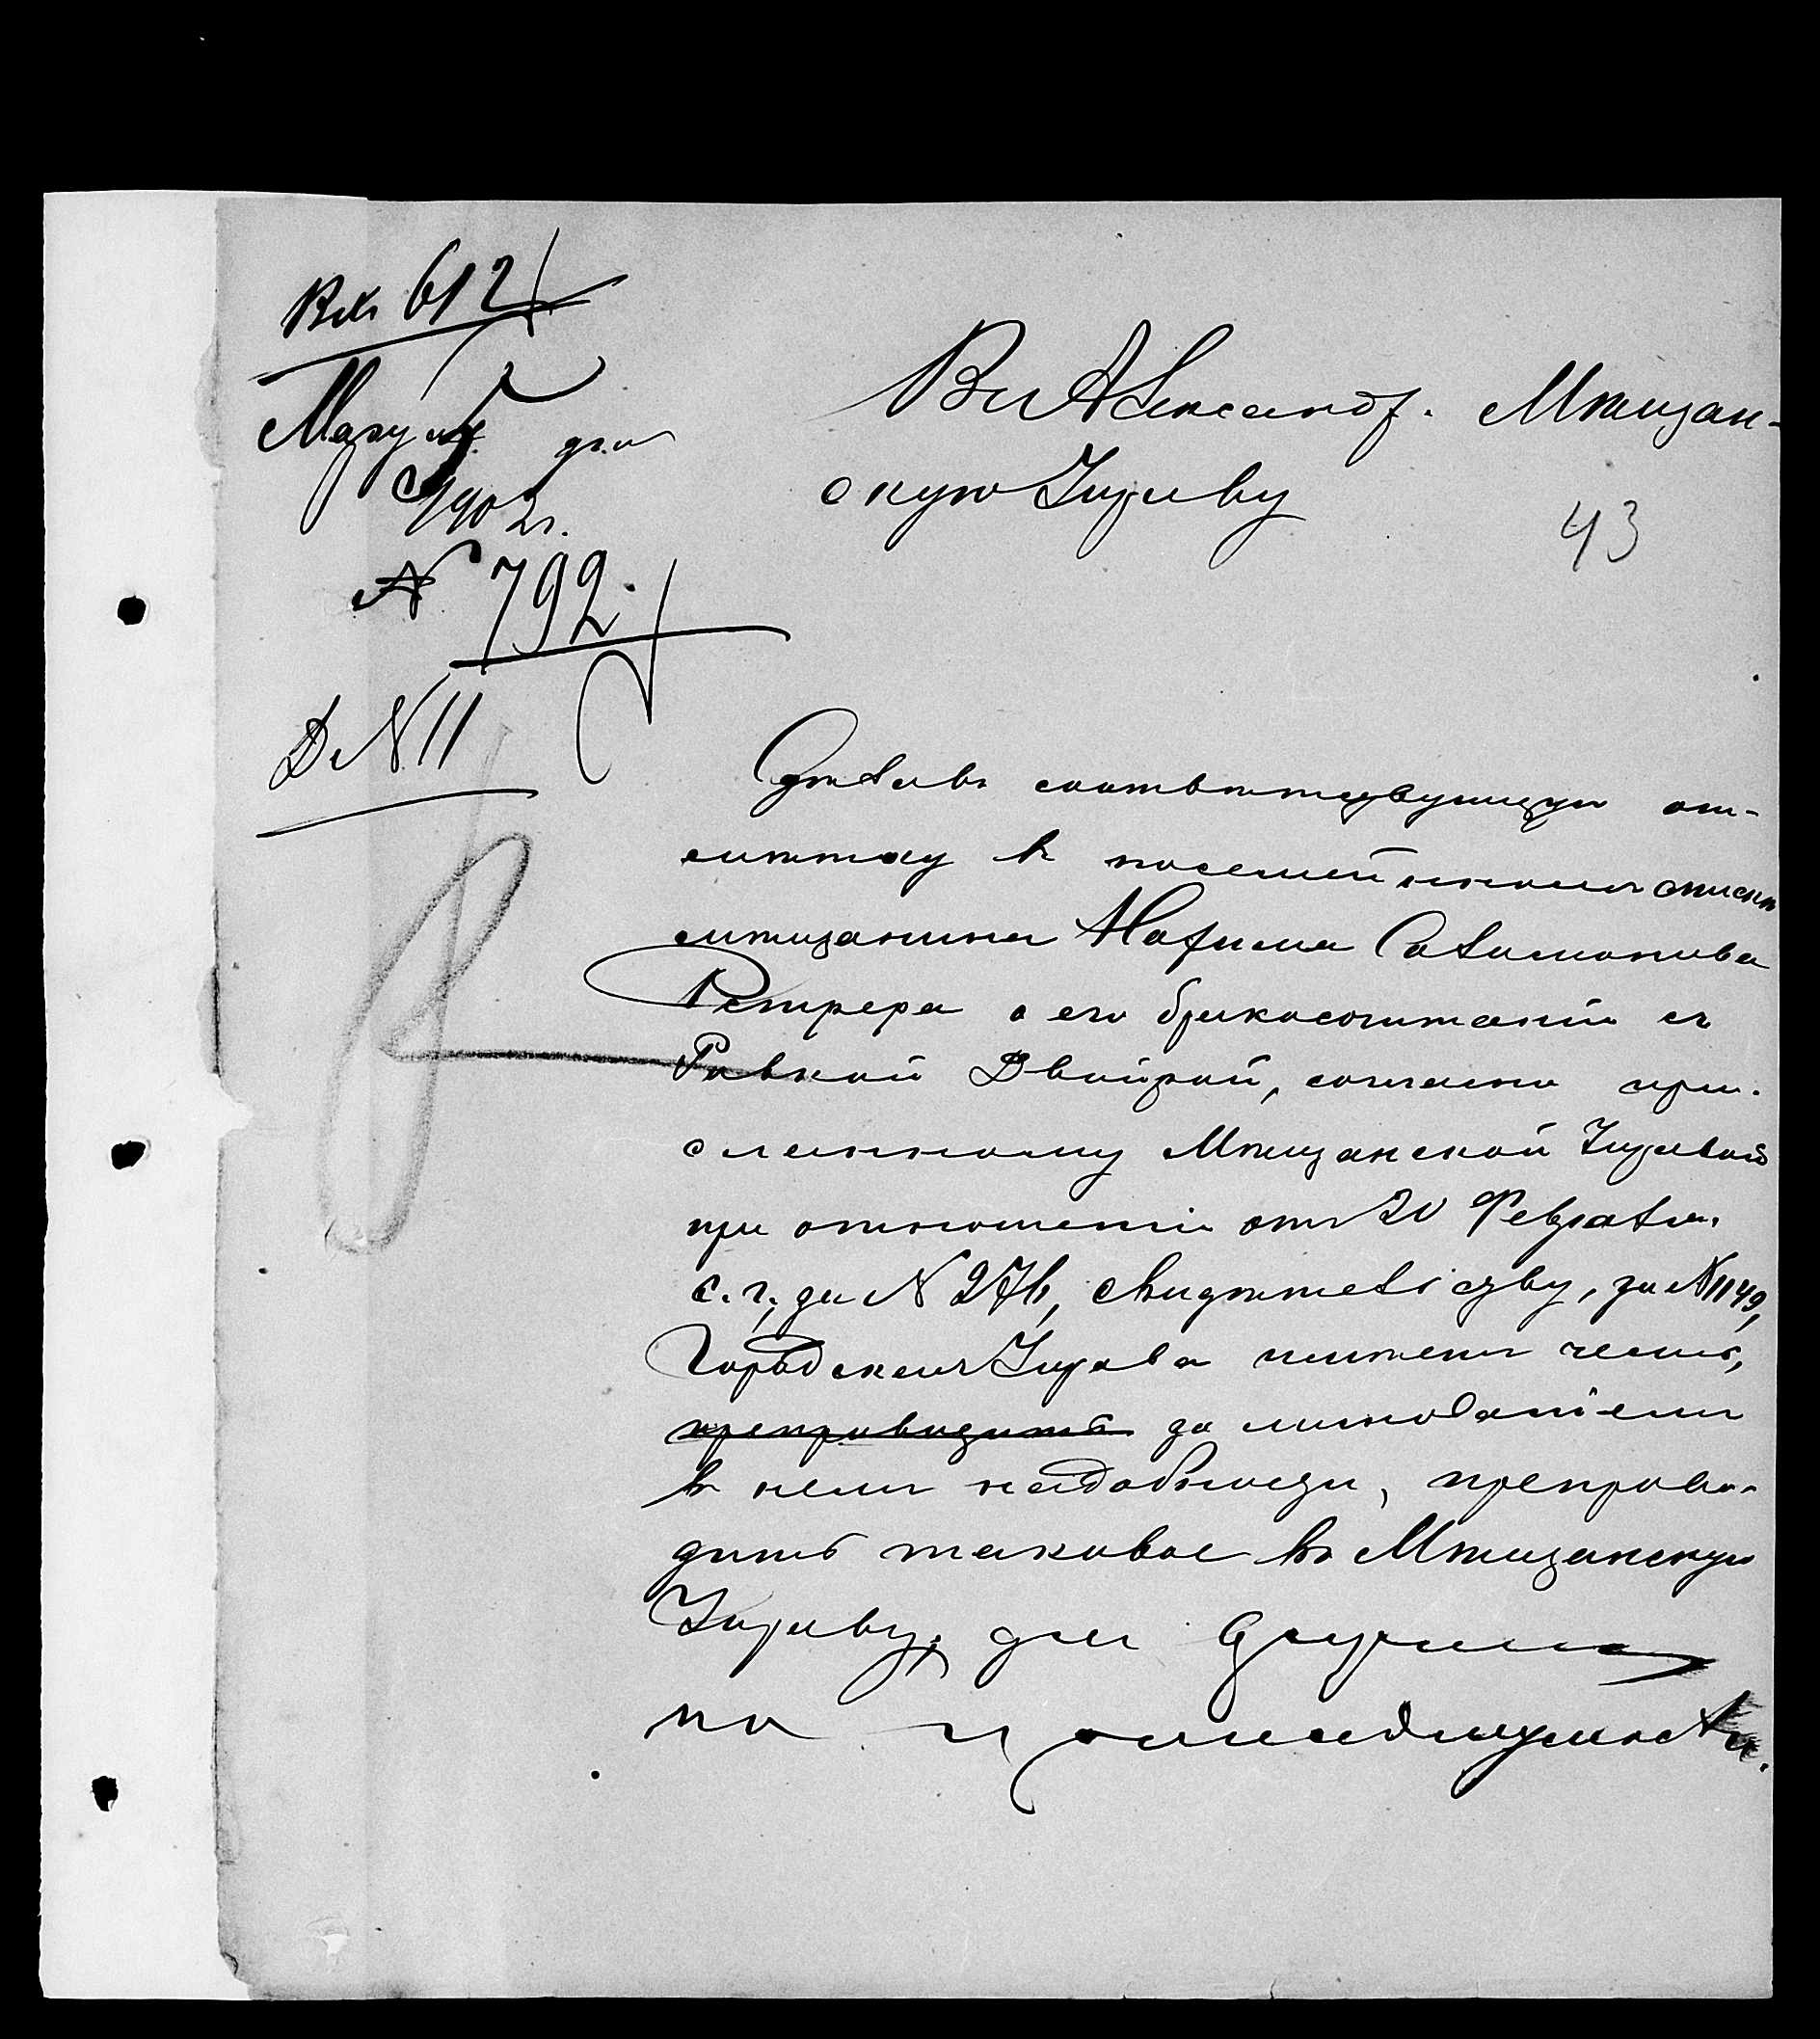 Вх 612
Марта дня
1902 г.
№ 792.
Д № 11
Въ Александр. Мѣщан-
скую Управу
43
Сдѣлавъ соотвѣтствующую от-
мѣтку въ посемейномъ спискѣ
мѣщанина Нахима Соломонова
о его бракосочетаніи съ
Ривкой Двойрой, согласно при-
сланному Мѣщанской Управой
при отношеніи отъ 20 Февраля
с. г., за № 276, свидѣтельству, за № 1149,
Городская Управа имѣетъ честь,
препроводить за минованіемъ
въ немъ надобности, препрово-
дить таковое въ Мѣщанскую
Управу, для выдачи
по принадлежности.